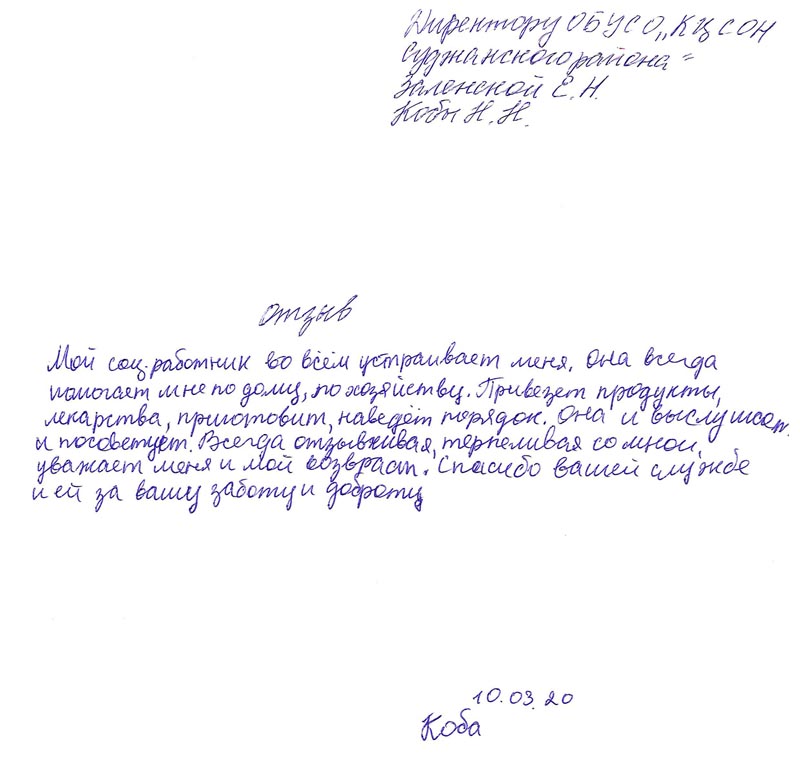 Директору ОБУСО „КЦСОН
Суджанского района"
Заленской Е.Н.
Кобы Н.Н.
Отзыв
Мой соц.работник во всём устраивает меня. Она всегда
помогает мне по дому, по хозяйству. Привезет продукты,
лекарства, приготовит, наведёт порядок. Она и выслушает
и посоветует. Всегда отзывчивая, терпеливая со мной,
уважает меня и мой возвраст. Спасибо вашей службе
и ей за вашу заботу и доброту
10.03.20
Коба